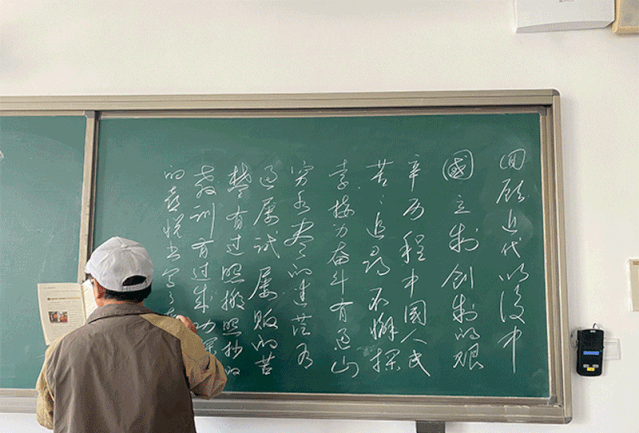 回顾近代以後中
國立制创制的艰
辛历程中國人民
苦々追寻不懈探
索接力奋斗有过山
穷水尽的迷茫有
过屡试屡败的苦
楚有过照搬照抄的
教训有过成功
的喜悦书写了